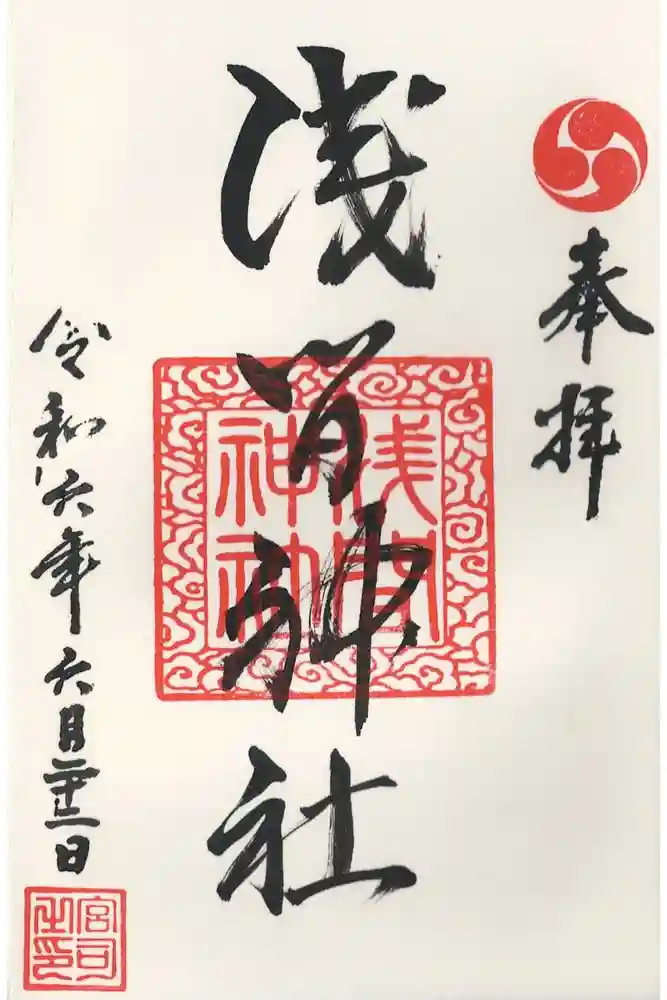 奉拝
浅間神社
浅間神社
令和六年六月二十三日
宮司之印